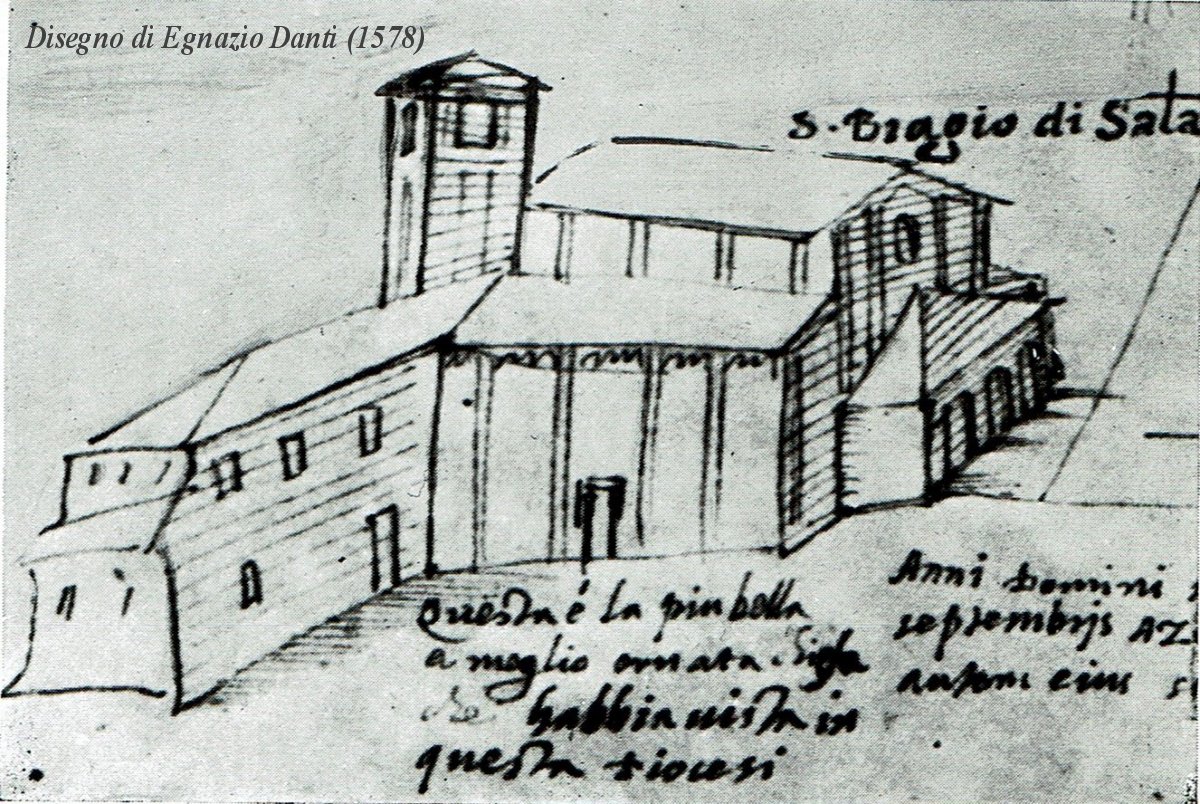 Disegno di Egnazio Danti (1578)
S. Biagio di Sala
Questa é la piu bella
e meglio ornata
che habbia uista in
questa diocesi
Anni Domini
septembris AZ
autem eius